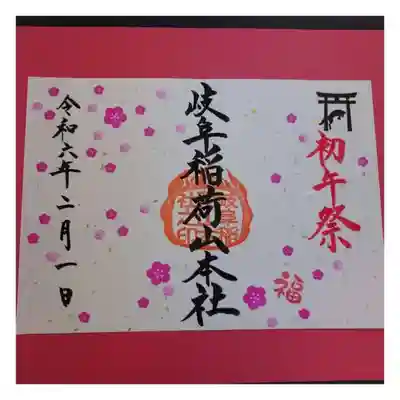 初午祭
福
岐阜稲荷山本社
令和六年二月一日